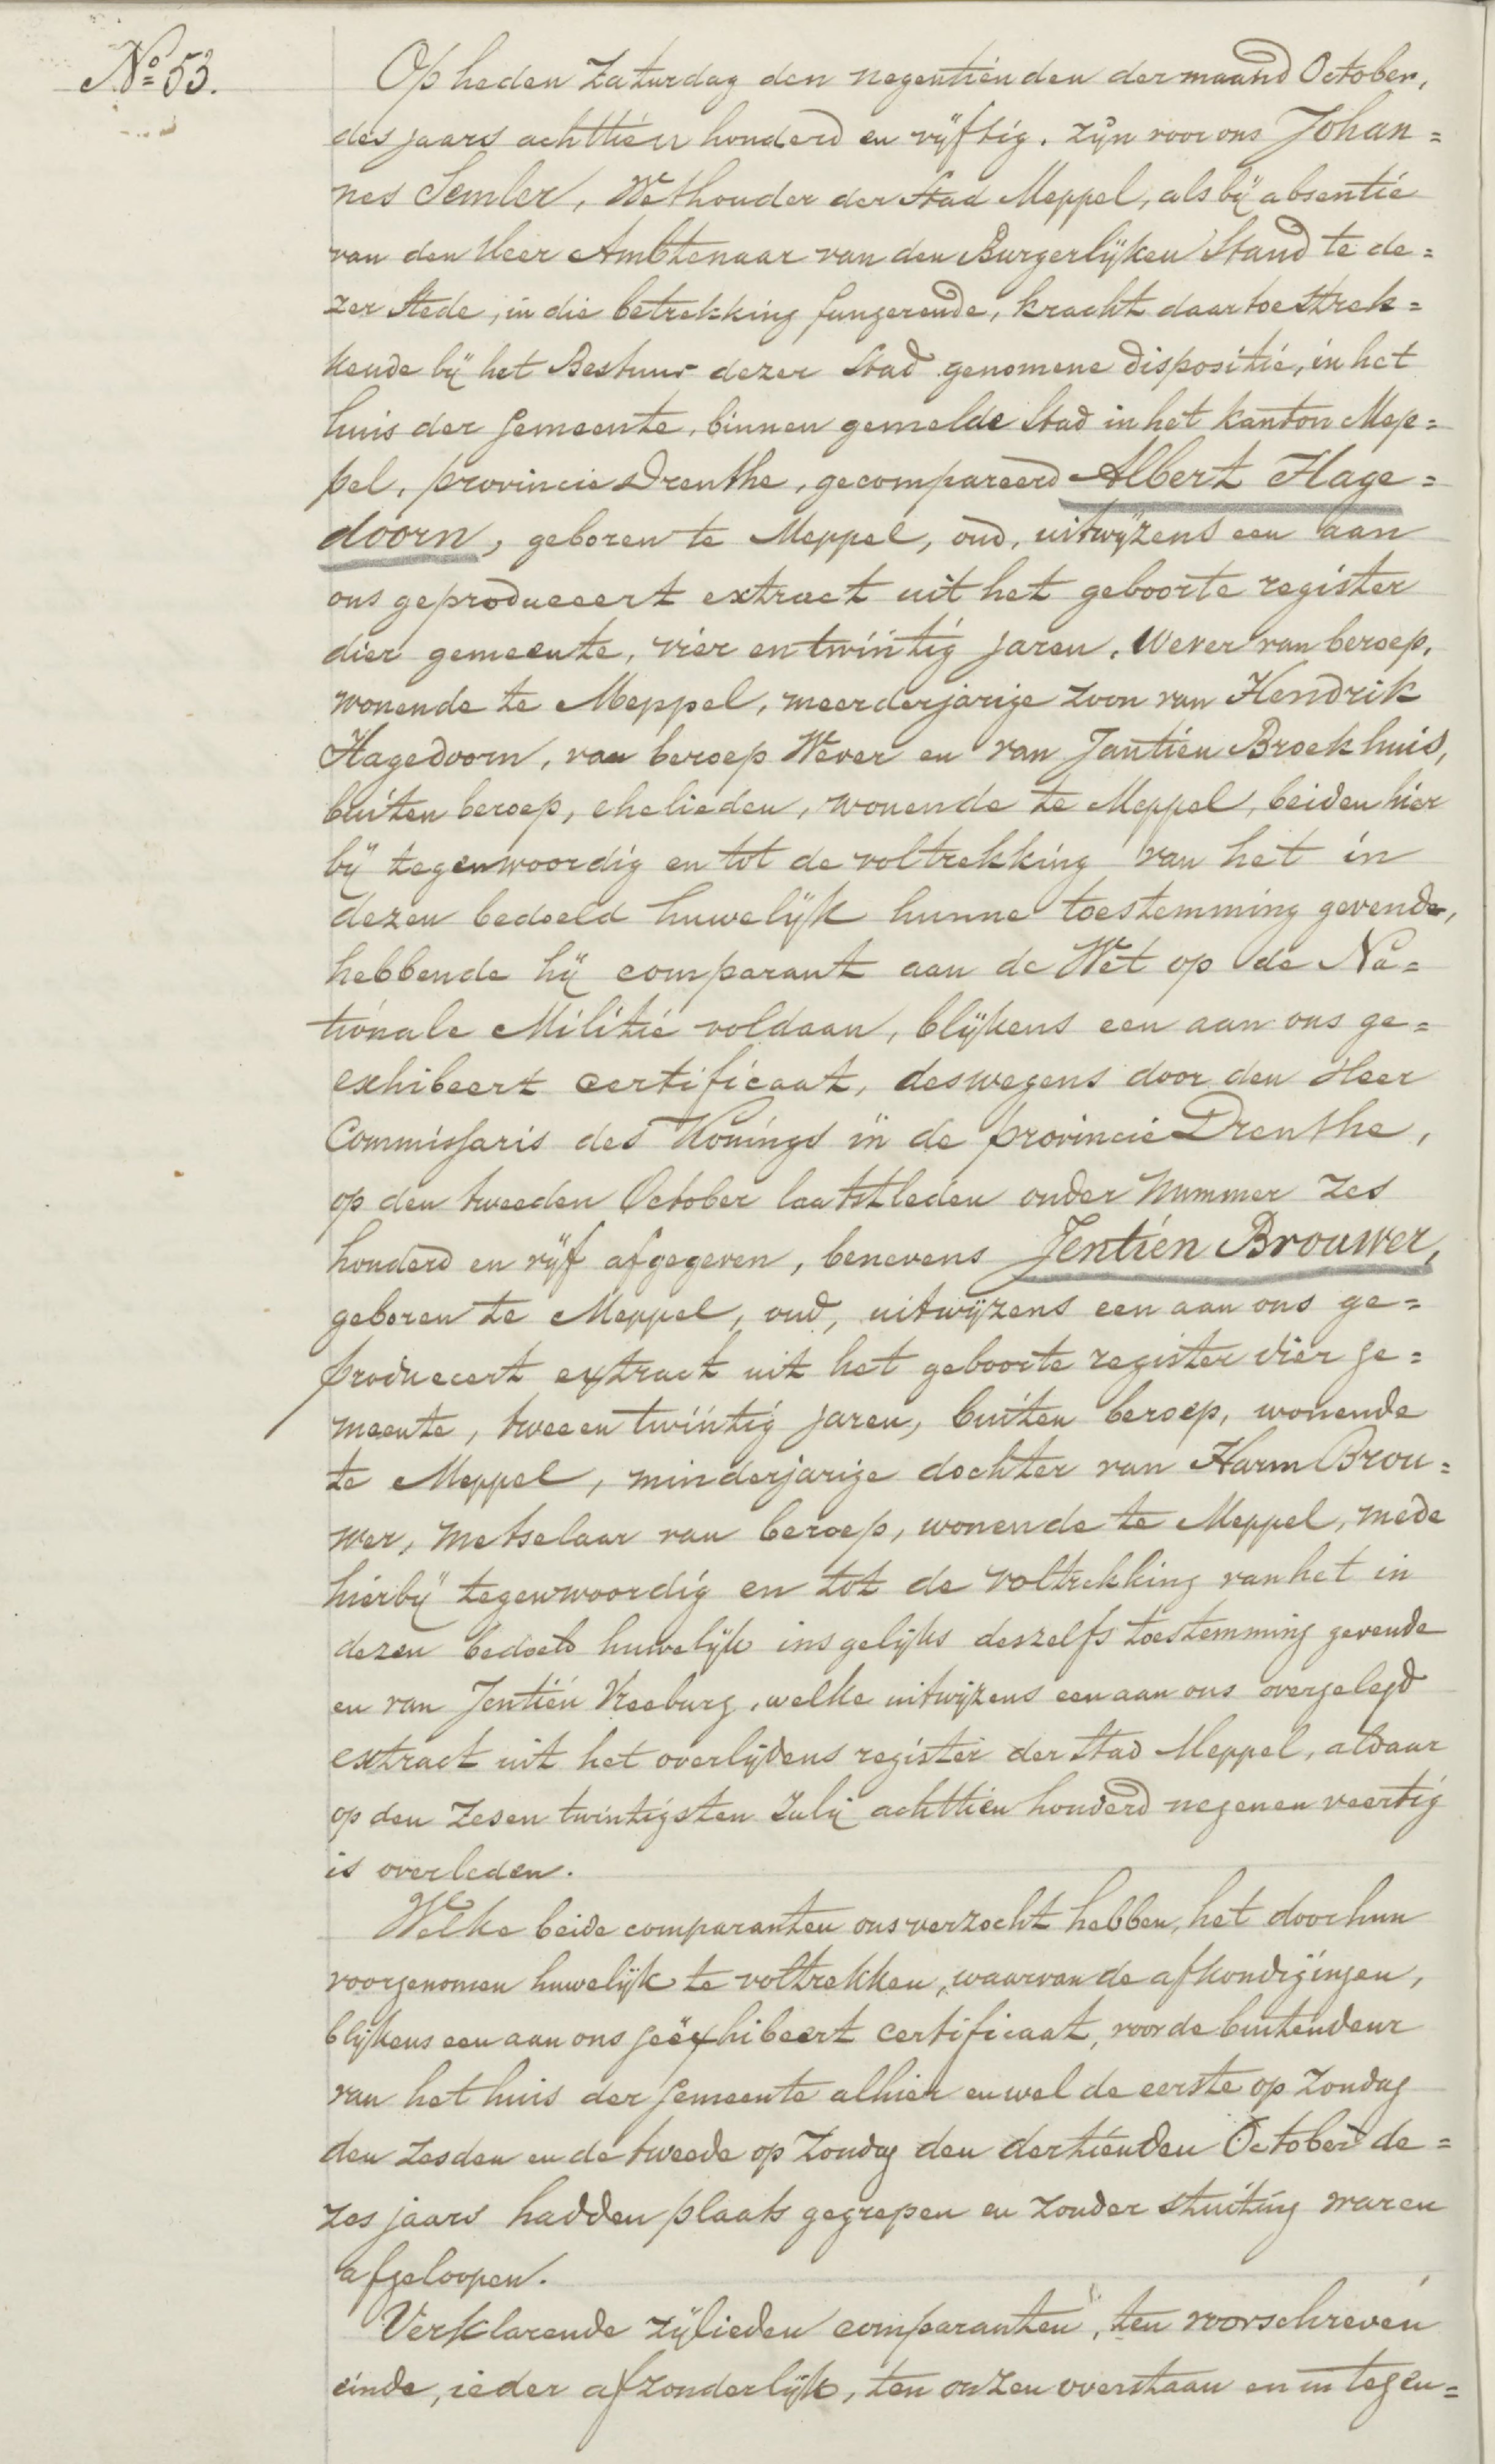 No 53.
Op heden Zaturdag den negentienden der maand October,
des jaars achttien honderd en vijftig. zijn voor ons Johan=
nes Semler, Wethouder der Stad Meppel, als bij absentie
van den Heer Ambtenaar van den Burgerlijken Stand te de=
zer Stede, in die betrekking fungerende, kracht daartoe strek=
kende bij het Bestuur dezer Stad genomene dispositie, in het
huis der Gemeente, binnen gemelde Stad in het kanton Mep=
pel, provincie Drenthe, gecompareerd Albert Hage=
doorn, geboren te Meppel, oud, uitwijzens een aan
ons geproduceert extract uit het geboorte register
dier gemeente, vier en twintig jaren, Wever van beroep,
wonende te Meppel, meerderjarige zoon van Hendrik
Hagedoorn, van beroep Wever en van Jantien Broekhuis,
buiten beroep, ehelieden, wonende te Meppel, beiden hier
bij tegenwoordig en tot de voltrekking van het in
dezen bedoeld huwelijk hunne toestemming gevende,
hebbende hij comparant aan de Wet op de Na=
tionale Militie voldaan, blijkens een aan ons ge=
exhibeert certificaat, deswegens door den Heer
Commissaris des Konings in de provincie Drenthe,
op den tweeden October laatstleden onder Nummer zes
honderd en vijf afgegeven, benevens Jentien Brouwer,
geboren te Meppel, oud, uitwijzens een aan ons ge=
produceert extract uit het geboorte register dier ge=
meente, twee en twintig jaren, buiten beroep, wonende
te Meppel, minderjarige dochter van Harm Brou=
wer, Metselaar van beroep, wonende te Meppel, mede
hierbij tegenwoordig en tot de voltrekking van het in
dezen bedoeld huwelijk insgelijks deszelfs toestemming gevende
en van Jentien Vreeburg, welke uitwijzens een aan ons overgelegd
extract uit het overlijdens register der Stad Meppel, aldaar
op den zesen twintigsten Julij achttien honderd negenen veertig
is overleden.
Welke beide comparanten ons verzocht hebben, het door hun
voorgenomen huwelijk te voltrekken, waarvan de afkondigingen,
blijkens een aan ons geëxhibeert certificaat, voor de buitendeur
van het huis der Gemeente alhier en wel de eerste op Zondag
den zesden en de tweede op Zondag den dertienden October de=
zes jaars hadden plaats gegrepen en zonder stuiting waren
afgeloopen.
Verklarende zijlieden comparanten, ten voorschreven
einde, ieder afzonderlijk, ten onzen overstaan en in tegen=